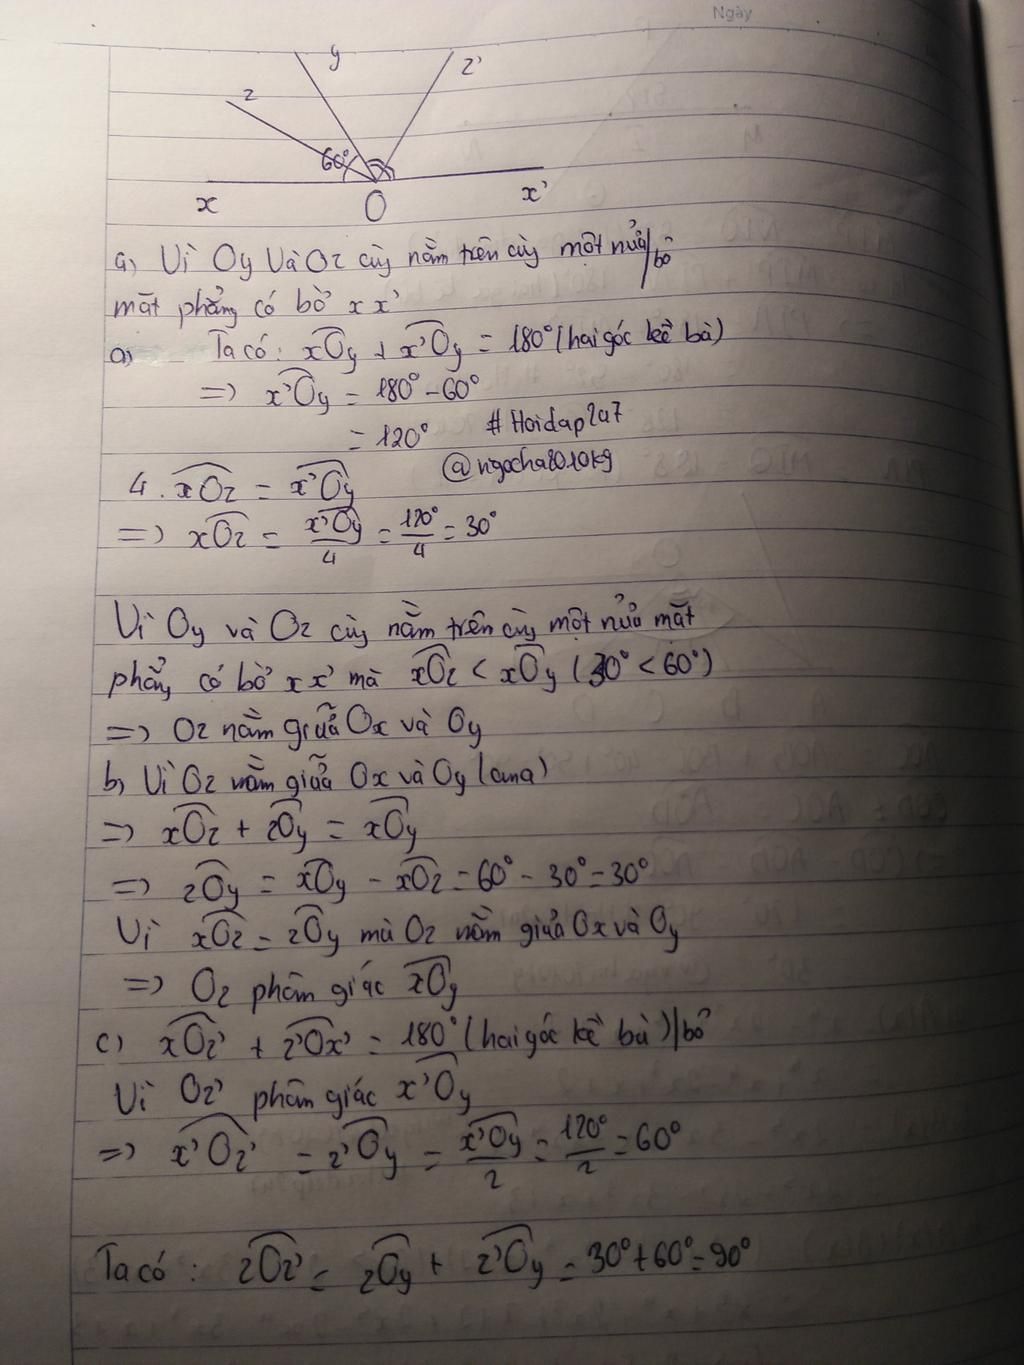 Ngày
y
z'
z
60°
x
O
x'
a) Vì Oy và Oz cùng nằm trên cùng một nửa/bỏ
mặt phẳng có bờ xx'
a) Ta có: xOy + x'Oy = 180° (hai góc kề bù)
=> x'Oy = 180° - 60°
= 120°
#Hoidap247
@ngocha8010kg
4. xOz = x'Oy
=> xOz = x'Oy/4 = 120°/4 = 30°
Vì Oy và Oz cùng nằm trên cùng một nửa mặt
phẳng có bờ xx' mà xOz < xOy (30° < 60°)
=> Oz nằm giữa Ox và Oy
b) Vì Oz nằm giữa Ox và Oy (cma)
=> xOz + zOy = xOy
=> zOy = xOy - xOz = 60° - 30° = 30°
Vì xOz = zOy mà Oz nằm giữa Ox và Oy
=> Oz phân giác xOy
c) xOz' + z'Ox' = 180° (hai góc kề bù)/bỏ
Vì Oz' phân giác x'Oy
=> x'Oz' = z'Oy = x'Oy/2 = 120°/2 = 60°
Ta có: zOz' = zOy + z'Oy = 30° + 60° = 90°